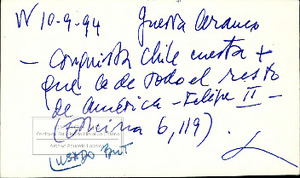 W 10-9-94 Guerra Arauco
- Conquista Chile cuesta +
que la de todo el resto
de América - Felipe II -
(Encina 6, 119)
USADO BUT